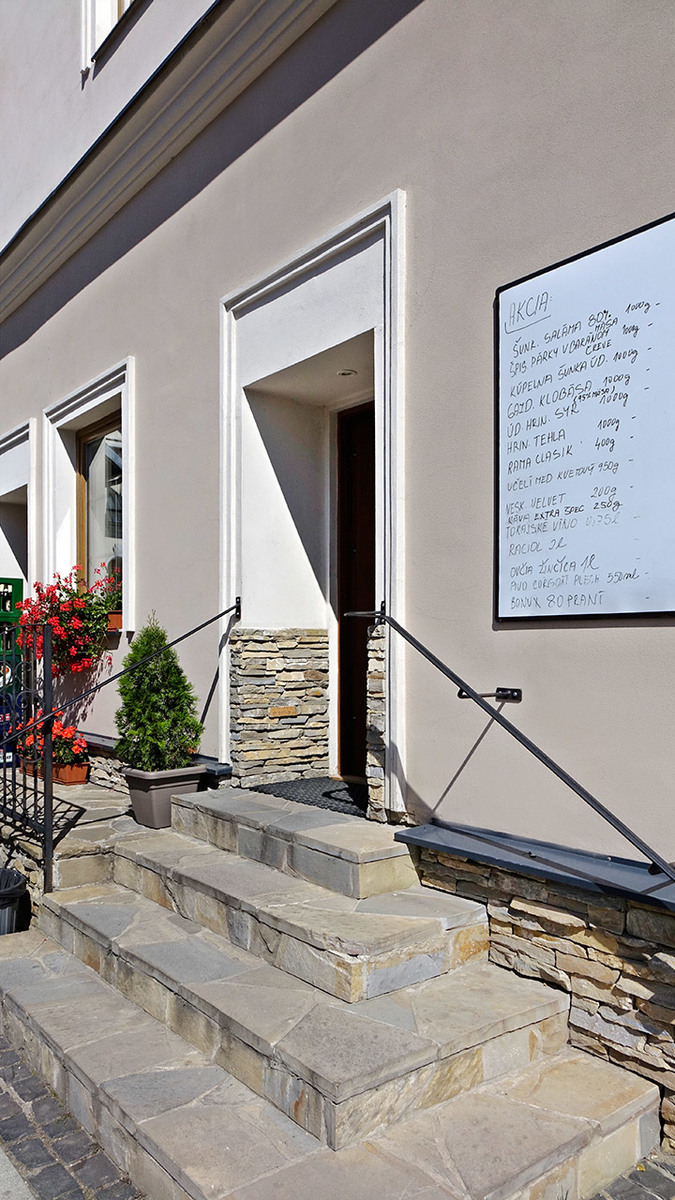 AKCIA:
ŠUNK. SALÁMA 80% MÄSA 1000g -
ŠPIS. PÁRKY V BARANOM ČREVE 1000g -
KÚPEĽNA ŠUNKA ÚD. 1000g -
GAZD. KLOBÁSA (95% MÄSA) 1000g -
ÚD. HRIN. SYR 1000g -
HRIN. TEHLA 1000g -
RAMA CLASIK 400g -
VČELÍ MED KVETOVÝ 950g -
VESK. VELVET 200g -
KÁVA EXTRA ŠPEC 250g -
TOKAJSKÉ VÍNO 0,75l -
RACIOL 2l -
OVČIA ŽINČICA 1l -
PIVO CORGOŇ PLECH 550ml -
BONUX 80 PRANÍ -